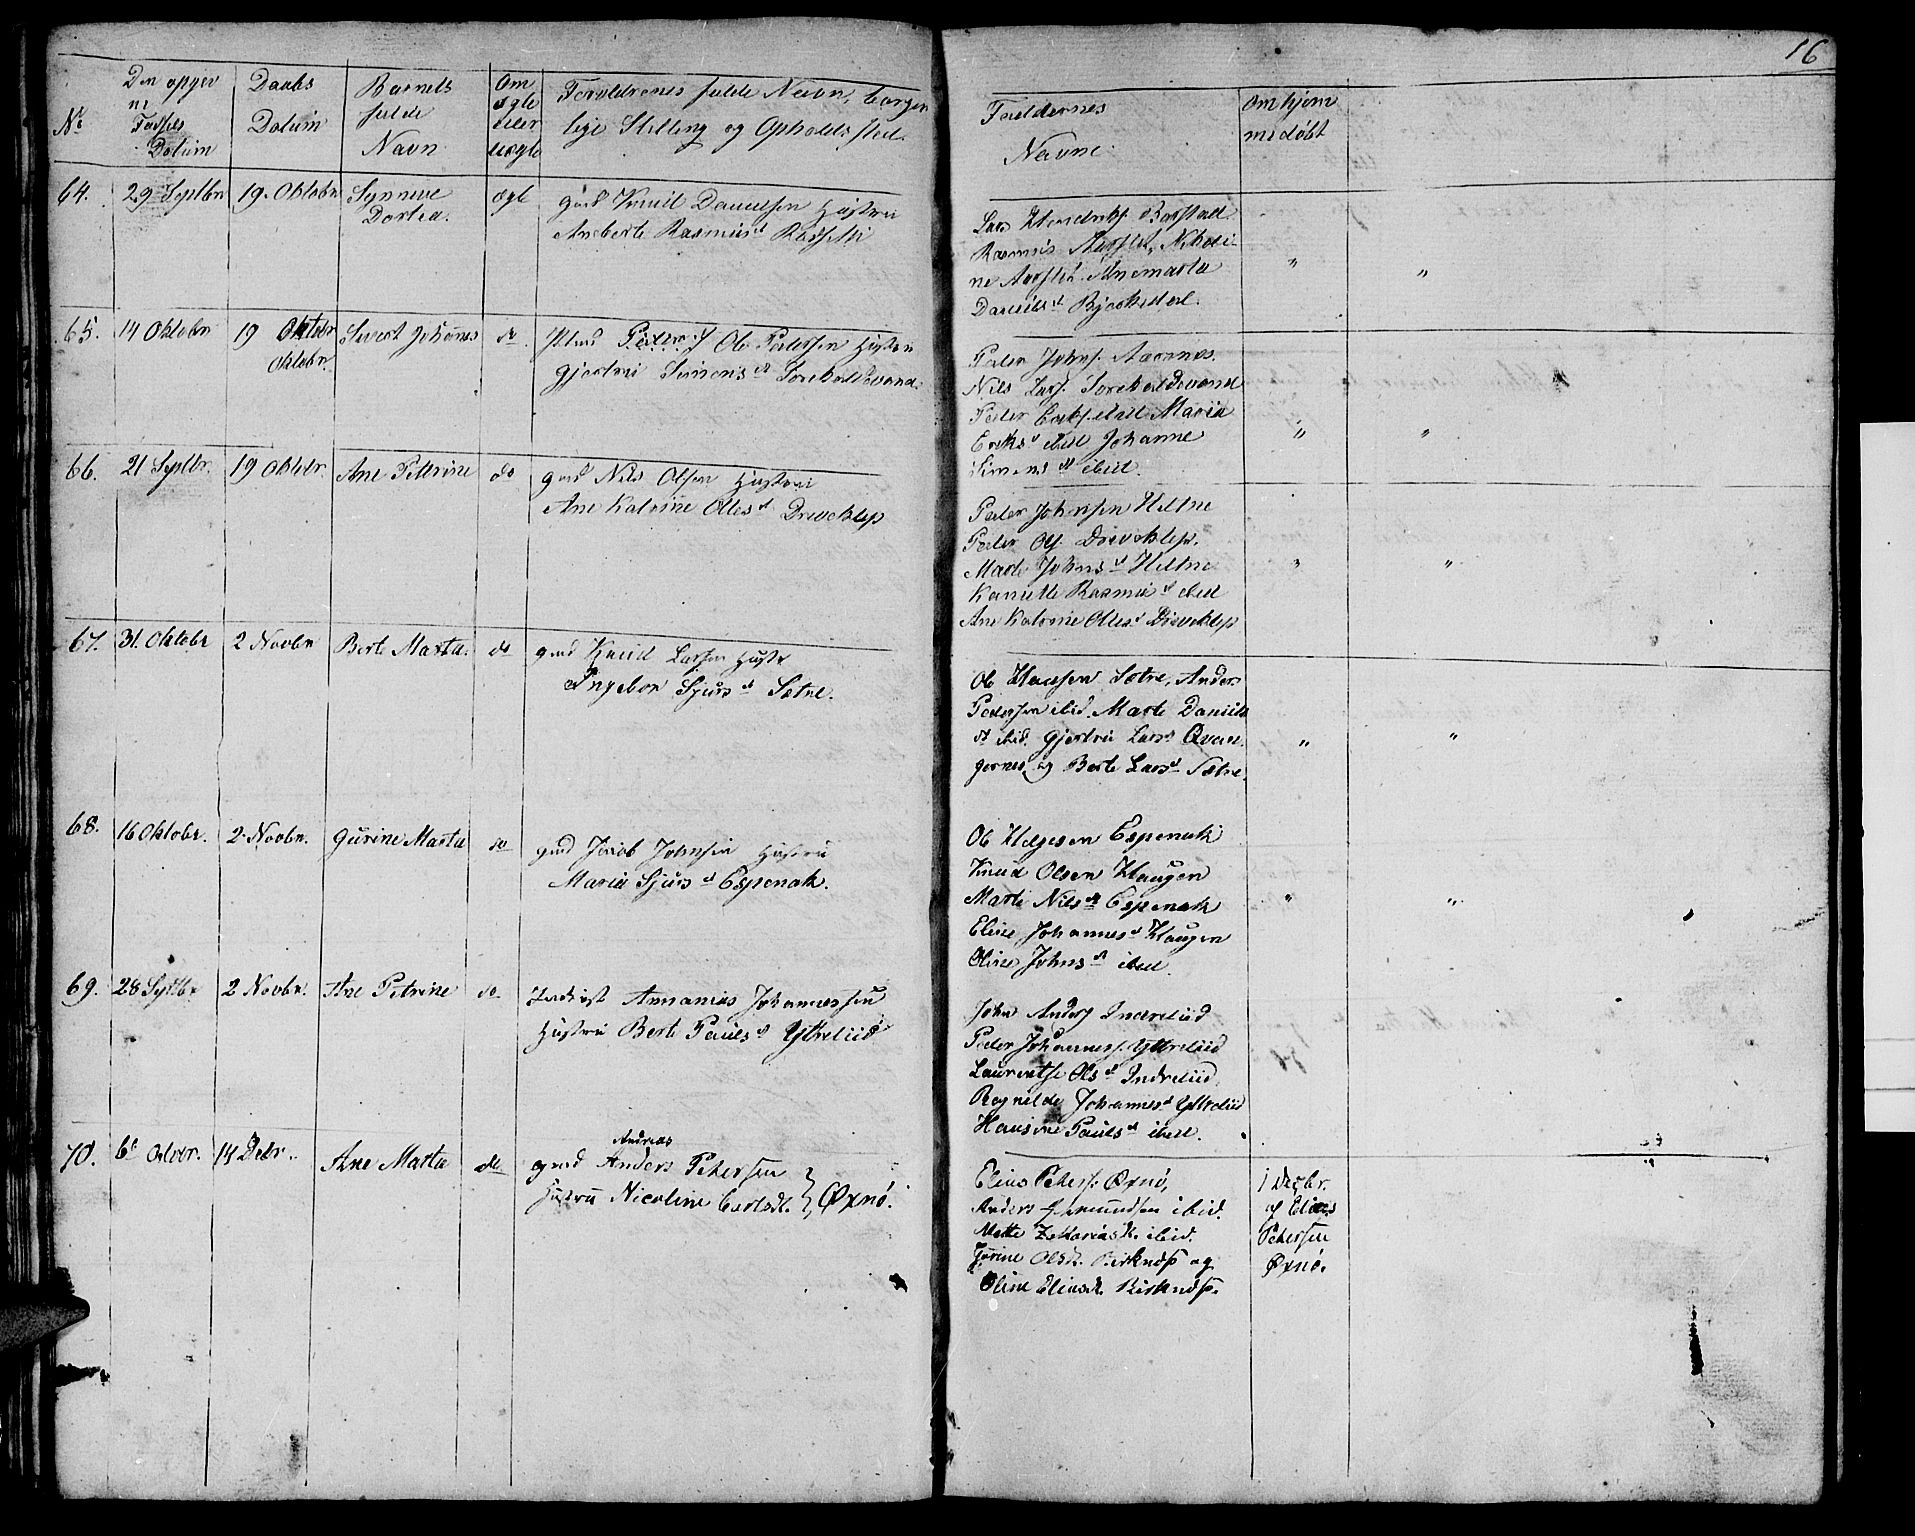 16
No
Den opgev
ne
Fødsels
Datum
Daabs
Datum
Barnets
fulde
Navn
Om
ægte
eller
uægte
Forældrenes fulde Navn, borger
lige Stilling og Opholdssted
Faddernes
Navne
Om hjem
medøbt
64. 29 Septbr 19. Oktobr Synneve
Dortea.
ægte
gmd Knud Danielsen Hustru
Aneberte Rasmusdt
Lars Hendriks.
Rasmus Aarflot, Nikoli-
ne Aarflot. Anemarta
Danielsdt Bjørkedal.
" "
65. 14 Oktobr 19 Oktobr
Oktobr.
Sivert Johannes do.
Ole Pedersen Hustru
Gjertrui Simensdt
Peder Johns. Aarnes.
Nils Lars.
Peder Eriks. ibid Maria
Eriksdt ibid Johanne
Simensdt ibid.
" "
66. 21 Septbr. 19 Oktbr. Ane Petrine do
gmd Nils Olsen Hustru
Ane Katrine Ollesdt Driveklep
Peder Johnsen Heltne
Peder Ols. Driveklep.
Marte Johnsdt Heltne
Rasmusdt ibid
Ane Katrine Ollesdt Driveklep
" "
67. 31. Oktobr 2 Novbr Berte Marta. do
gmd Knud Larsen Hustr
Ingebor Sjursdt Sætre.
Ole Hansen Sætre, Anders
Pedersen ibid. Marte Daniels
dt ibid. Gjertru Larsdt Qvan
gernes, og Berte Larsdt Sætre.
" "
68. 16 Oktobr. 2 Novbr. Gurine Marta do
gmd Jacob Johnsen Hustru
Maria Sjursdt Espenak.
Ole Helgesen Espenak
Knud Olsen Haugen
Marte Nilsdt Espenak
Eline Johannesdt Haugen
Oline Johnsdt ibid.
" "
69. 28 Septbr 2 Novbr. Ane Petrine do
Annanias Johannessen
Hustru Berte Paulsdt Ytreliid
John Anders Indreliid
Peder Johanness. Ytreliid
Lauritse Olsdt Indreliid
Ragnilde Johannesdt Ytreliid
Hansine Paulsdt ibid.
70. 6te Octbr. 14 Debr. Ane Marta do
Andreas
gmd Anders Petersen
Hustru Nicoline } Øxnø.
Elias Peters. Øxnø,
Anders ibid.
Mette Zakariasdt. ibid.
Olsdt. Birknæs og
Oline Eliasdt. Birknæs.
1 Decbr.
af Elias
Petersen
Øxnø.